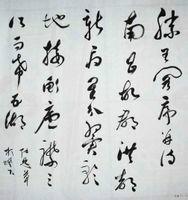 滕王阁序并诗
南昌故郡洪都
新府星分翼轸
地接衡庐襟三
江而带五湖